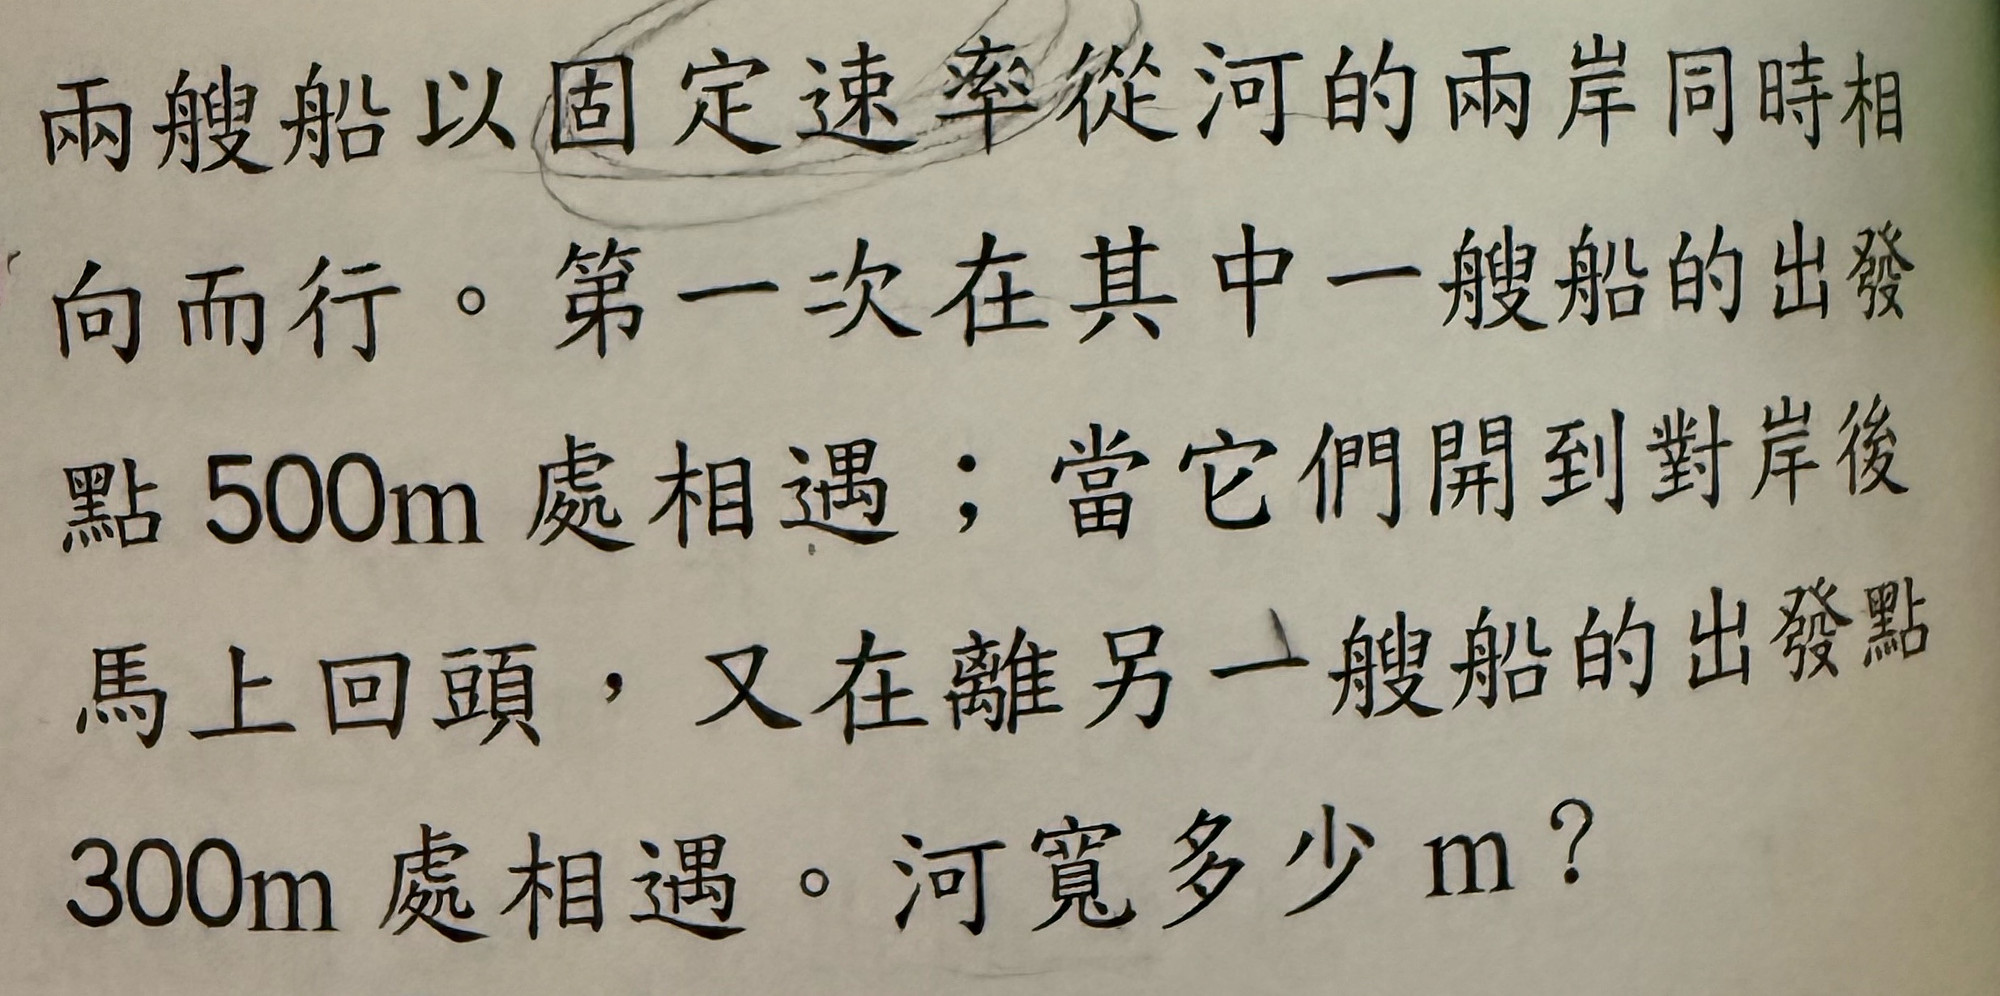 兩艘船以固定速率從河的兩岸同時相
向而行。第一次在其中一艘船的出發
點500m處相遇；當它們開到對岸後
馬上回頭，又在離另一艘船的出發點
300m處相遇。河寬多少m？